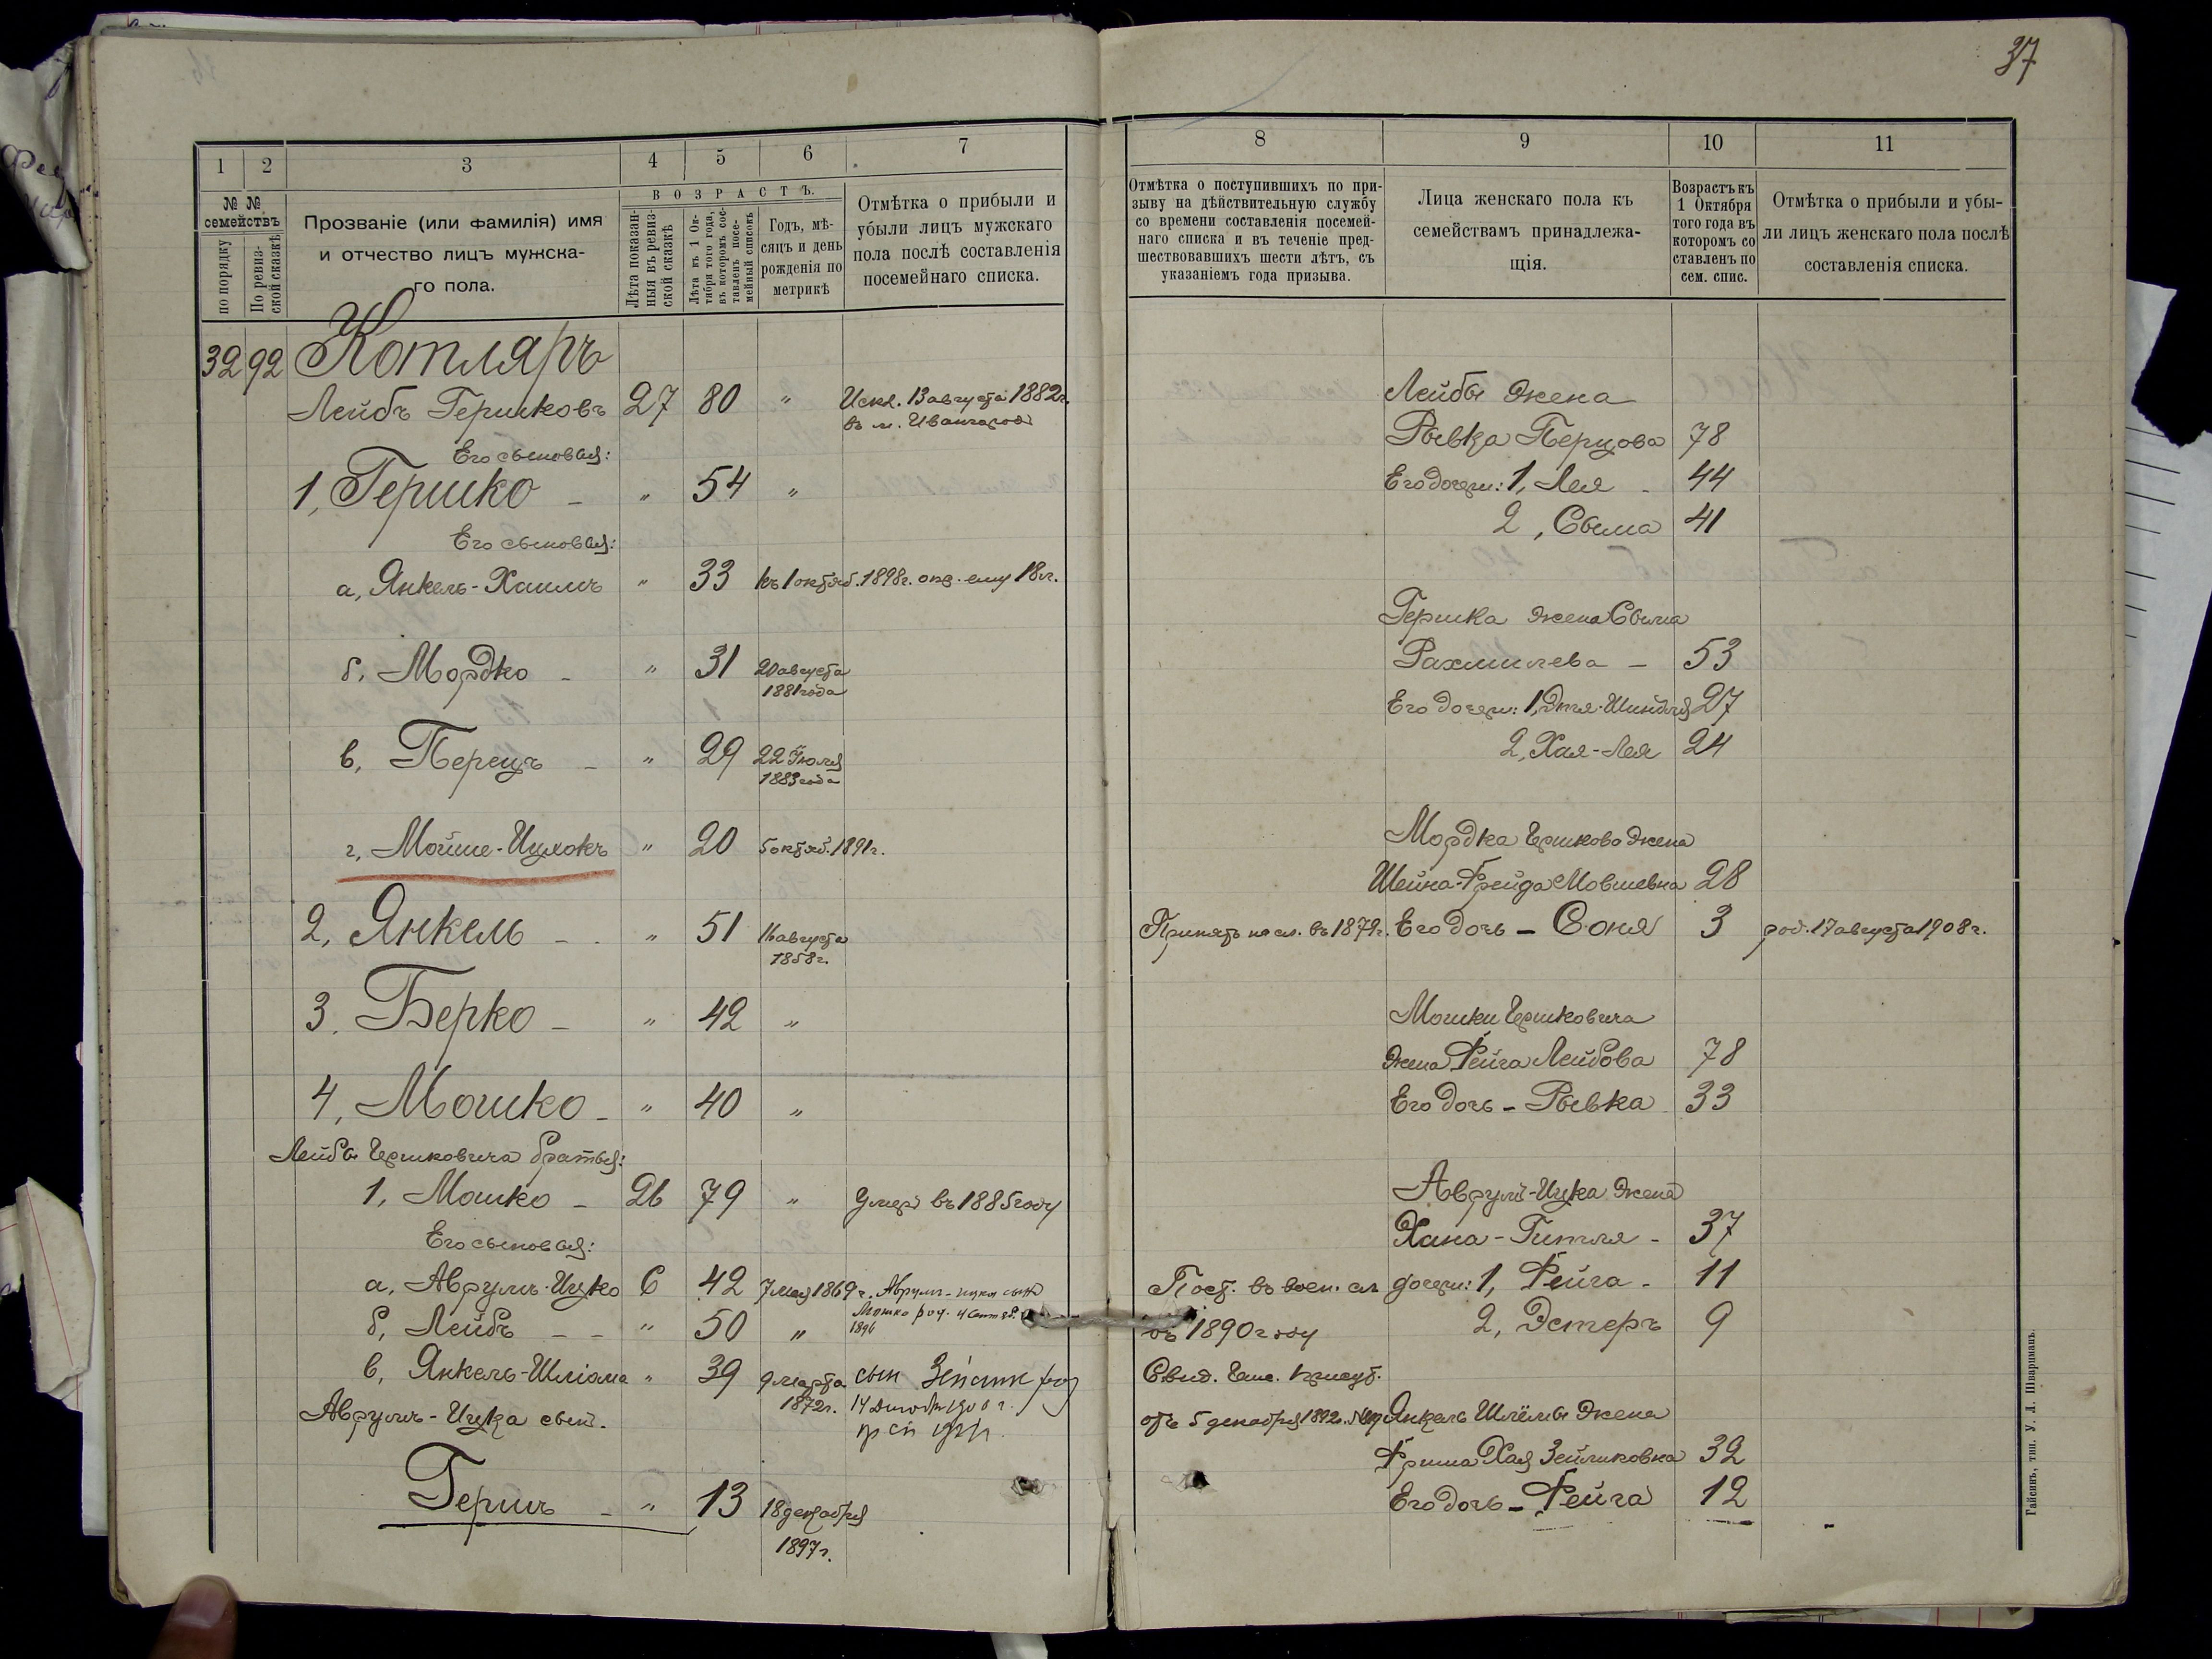 37
1
2
3
4
5
6
7
№ №
семействъ
по порядку
По ревиз-
ской сказкѣ
Прозваніе (или фамилія) имя
и отчество лицъ мужска-
го пола.
ВОЗРАСТЪ.
Лѣта показан-
ныя въ ревиз-
ской сказкѣ
Лѣта къ 1 Ок-
тября того года,
въ которомъ сос-
тавленъ посе-
мейный списокъ
Годъ, мѣ-
сяцъ и день
рожденія по
метрикѣ
Отмѣтка о прибыли и
убыли лицъ мужскаго
пола послѣ составленія
посемейнаго списка.
32 92 Котляръ
Лейбъ Гершковъ 27 80 " Искл. 13 августа 1882г.
въ м. Ивангород
Его сыновья:
1, Гершко - " 54 "
Его сыновья:
а, Янкель-Хаимъ " 33 къ 1 октяб. 1898г. опр. ему 18 л.
б, Мордко - " 31 20 августа
1881 года
в, Перецъ - " 29 22 Іюля
1883 года
г, Мойше-Ицхокъ " 20 5 октяб. 1891г.
2, Янкель - - " 51 16 августа
1858г.
3. Берко - " 42 "
4, Мошко - " 40 "
Лейбы Гершковича братья:
1, Мошко - 26 79 " Умеръ въ 1885 году
Его сыновья:
а, Аврумъ-Ицко 6 42 7 мая 1869г. Аврумъ-ицки сынъ
Мошко род. 4 Сентяб.
1896
б, Лейбъ - - " 50 "
в, Янкель-Шліома " 39 9 марта
1872г.
сын Зейлик род
14 1900 г.
Аврумъ-Ицка сынъ.
Гершъ - " 13 18 декабря
1897г.
8
9
10
11
Отмѣтка о поступившихъ по при-
зыву на дѣйствительную службу
со времени составленія посемей-
наго списка и въ теченіе пред-
шествовавшихъ шести лѣтъ, съ
указаніемъ года призыва.
Лица женскаго пола къ
семействамъ принадлежа-
щія.
Возрастъ къ
1 Октября
того года въ
которомъ со
ставленъ по
сем. спис.
Отмѣтка о прибыли и убы-
ли лицъ женскаго пола послѣ
составленія списка.
Лейбы жена
Рывка Перцова 78
Его дочери: 1, Лея - 44
2, Сыма 41
Гершка жена Сыма
Рахмилева - 53
Его дочери: 1, Этя-Шиндля 27
2, Хая-Лея 24
Мордка Гершкова жена
Шейна-Фрейда Мовшевна 28
Принятъ на сл. въ 1879г. Его дочь - Соня 3 род. 17 августа 1908г.
Мошки Гершковича
жена Фейга Лейбова 78
Его дочь - Рывка 33
Аврумъ-Ицка жена
Хана-Гитля - 37
Пост. въ воен. сл дочери: 1, Фейга - 11
въ 1890 году 2, Эстеръ 9
Свид. Гайс. присут.
отъ 5 декабря 1892г. Янкель Шлёмы жена
Фрима Хая Зейликовна 32
Его дочь - Фейга 12
Гайсинъ, тип. У. Л. Шварцманъ.